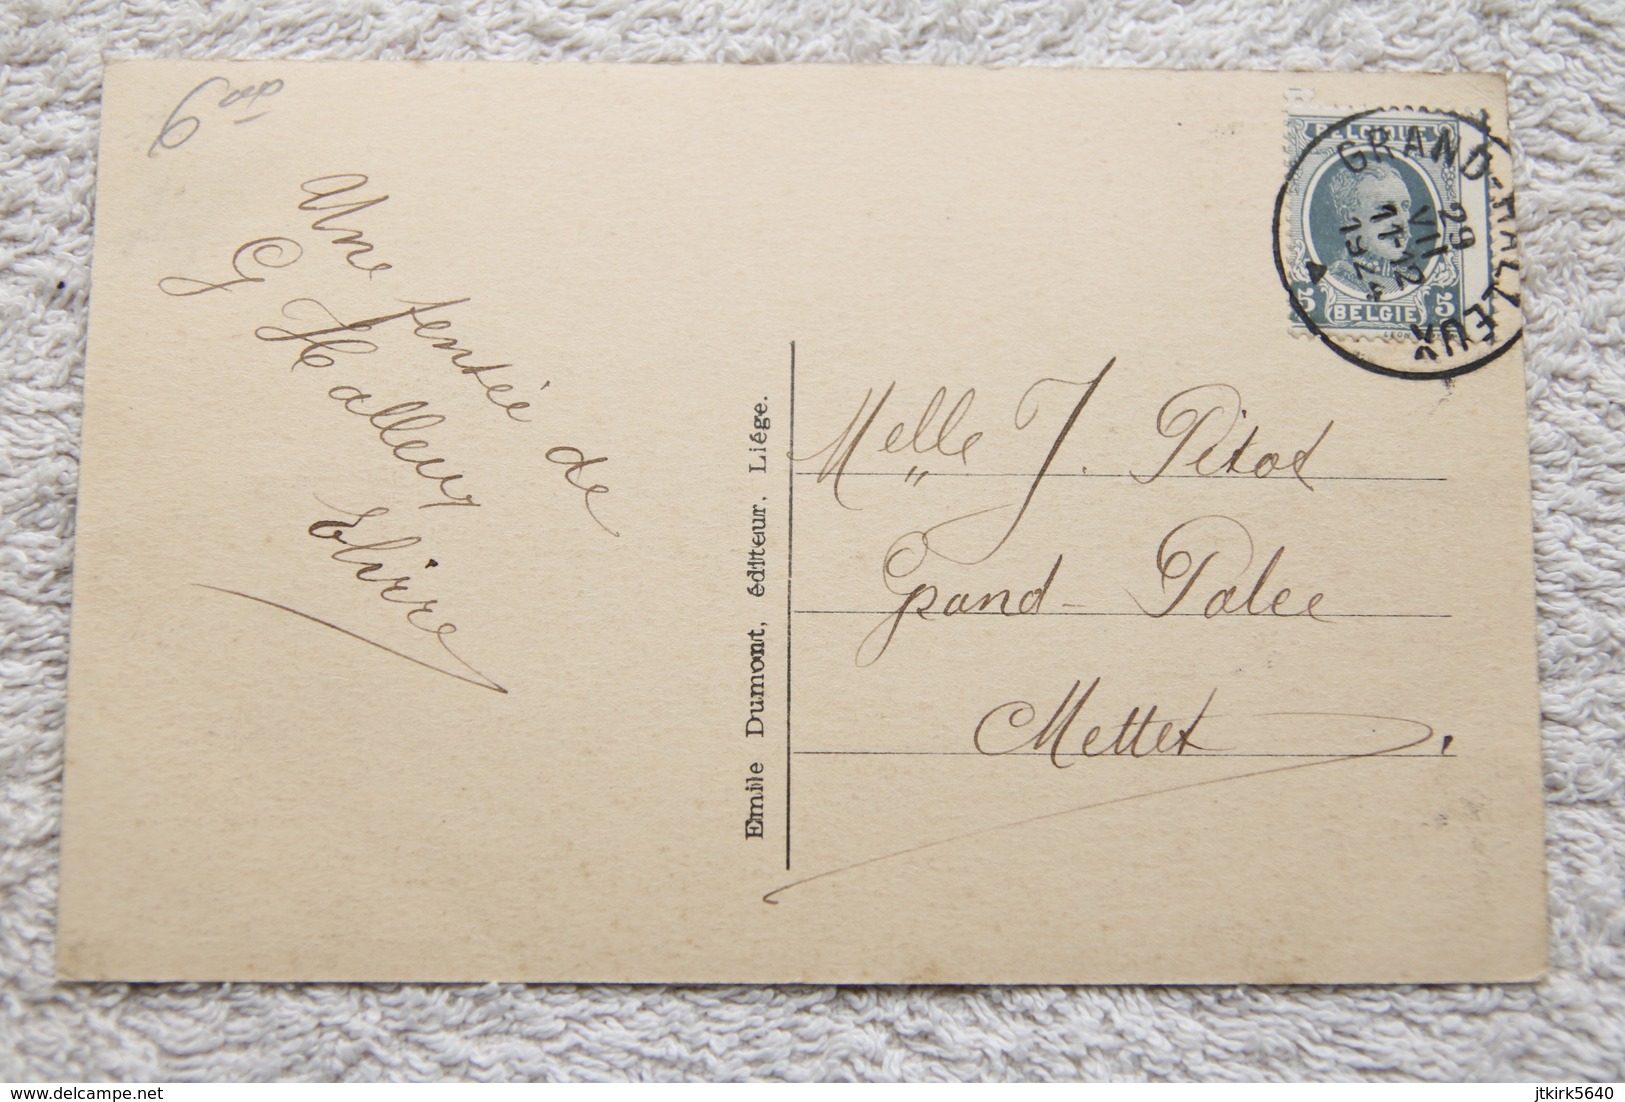 6
Une pensée de
G Halleux
Elvire
Emile Dumont, éditeur. Liége.
BELGIQUE
5 5
BELGIE
GRAND-HALLEUX
29
VII
11-12
1924
Melle J. Pitot
Grand-Place
Mettet.
delcampe.net
jtkirk5640